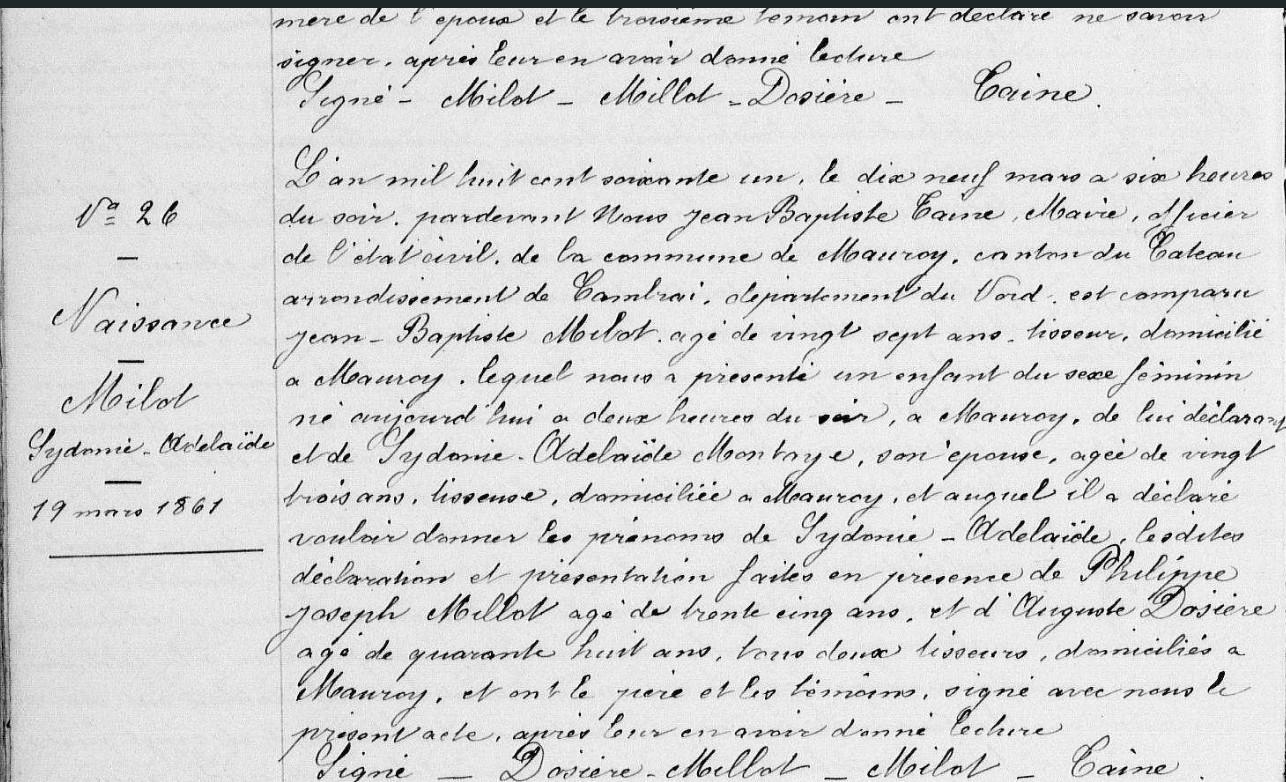 mère de l'époux et le troisième témoin ont déclaré ne savoir
signer, après leur en avoir donné lecture
Signé - Milot - Millot - Dosière - Taine.
L'an mil huit cent soixante un, le dix neuf mars a six heures
du soir, pardevant Nous Jean Baptiste Taine, Maire, officier
de l'état civil, de la commune de Mauroy, canton du Cateau
arrondissement de Cambrai, département du Nord, est comparu
Jean-Baptiste Milot, agé de vingt sept ans, tisseur, domicilié
a Mauroy, lequel nous a présenté un enfant du sexe féminin
né aujourd'hui a deux heures du soir, a Mauroy, de lui déclarant
et de Sydonie-Adelaïde Montaye, son épouse, agée de vingt
trois ans, tisseuse, domiciliée a Mauroy, et auquel il a déclaré
vouloir donner les prénoms de Sydonie-Adelaïde, lesdites
déclaration et présentation faites en présence de Philippe
Joseph Millot agé de trente cinq ans, et d'Auguste Dosière
agé de quarante huit ans, tous deux tisseurs, domiciliés a
Mauroy, et ont le père et les témoins, signé avec nous le
présent acte, après leur en avoir donné lecture
Signé - Dosière - Millot - Milot - Taine.
No 26
Naissance
Milot
Sydonie-Adelaïde
19 mars 1861